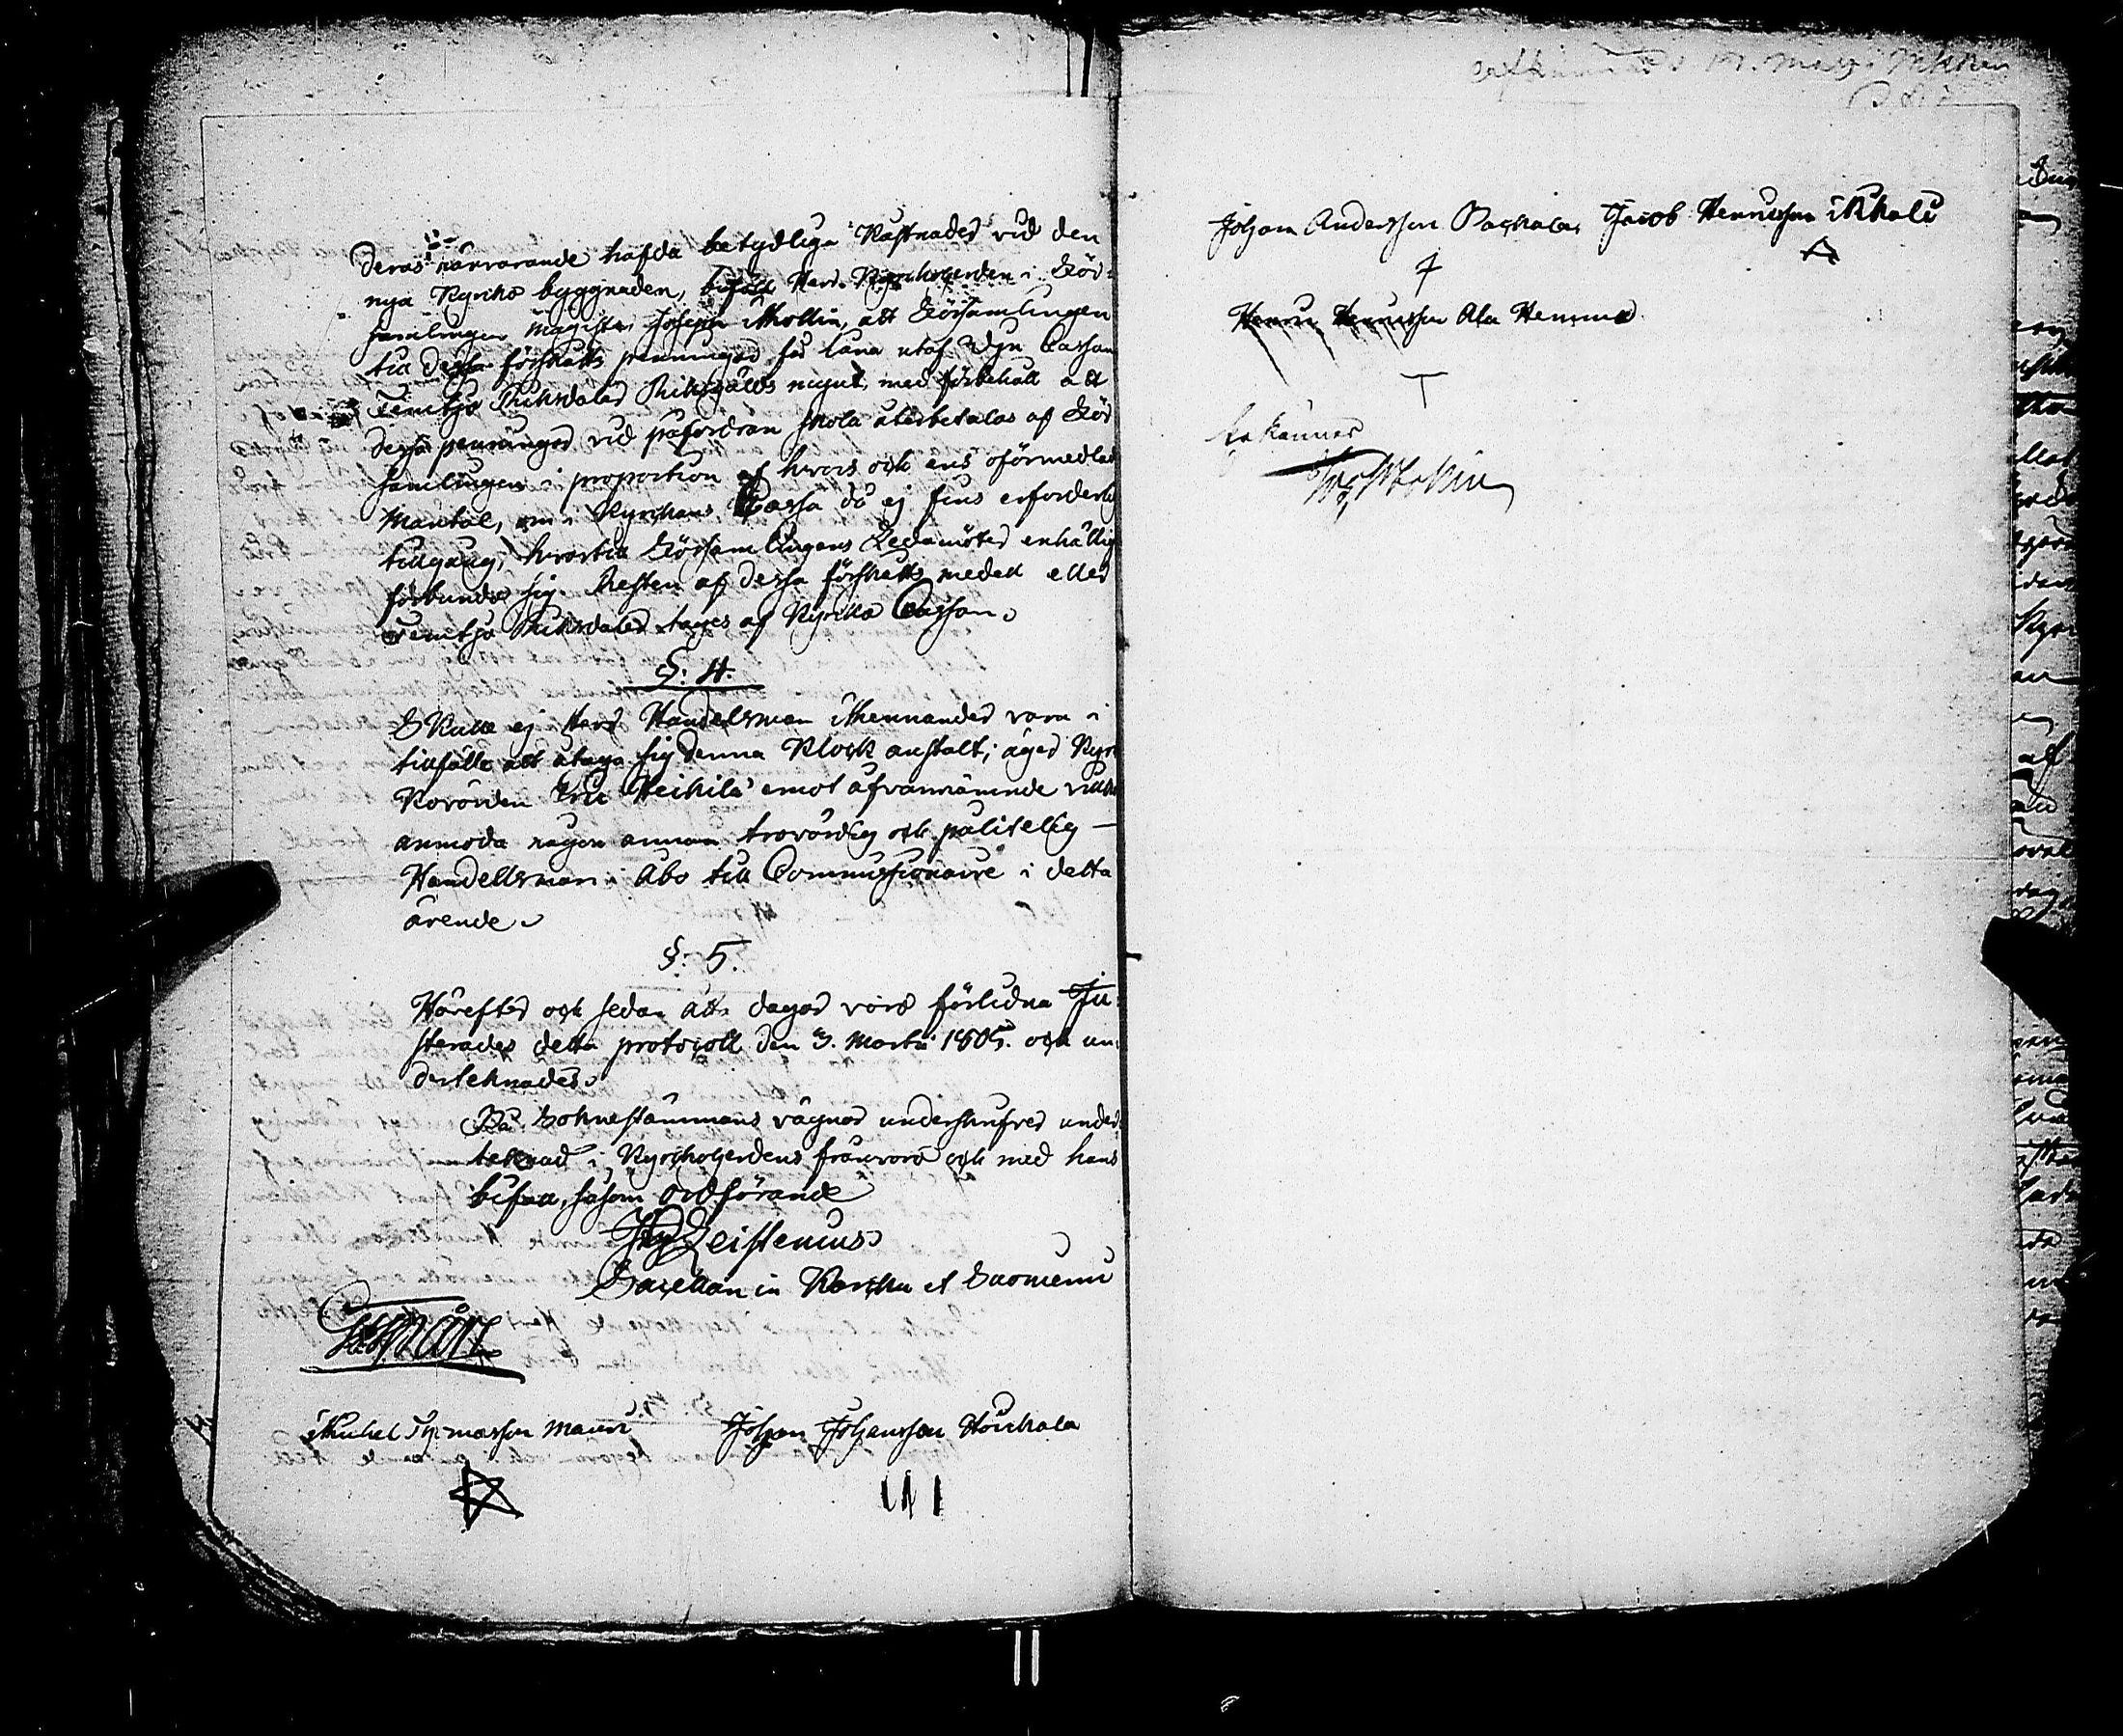 deras närvarande hafda betydliga Kåstnader vid den
nya Kyrcko byggnaden, biföll Herr Kyrckoherden i För-
samlingen Magister Joseph Mollin, att Församlingen
till dessa förskotts penningar få låna utaf Dyn Cassan
Femtjo Riksdaler Riksgälds mynt, med förbehåll att
dessa penningar vid påfordran skola återbetalas af För
samlingen i proportion af hvars och ens oförmedlade
Mantal, om i Kyrckans Cassa då ej fins erforderlig
tillgång, hvartill Församlingens Ledamöter enhällig
förbundo sig. Resten af dessa förskotts medel eller
Femtjo Riksdaler tages af Kyrcko Cassan.
§. 4.
Skulle ej Herr Handelsman Mennander vara i
tillfälle att åtaga sig denna Klock anstalt; äger Kyrc
Wärden Eric Heikilä emot ofvannämnde vilkor
anmoda någon annan trovärdig och pålitelig
Handellsman i Åbo till Commissionaire i detta
ärende.
§. 5.
Härefter och sedan åtta dagar voro förlidna Ju-
sterades detta protocoll den 3. Martii 1805. och un-
derteknades.
På Soknestämmans vägnar underskrifver under
teknad i Kyrckoherdens frånvaro och med hans
bifall, såsom Ordförande
Leistenius
Sacellan in Karcku et Suomemi
Michel Thomasson Mauri Johan Johansson Houhala
Johan Andersson Jacob Henricsson
Henric Henricsson Ala Hemmo
Erkännes
Jos. Mollin